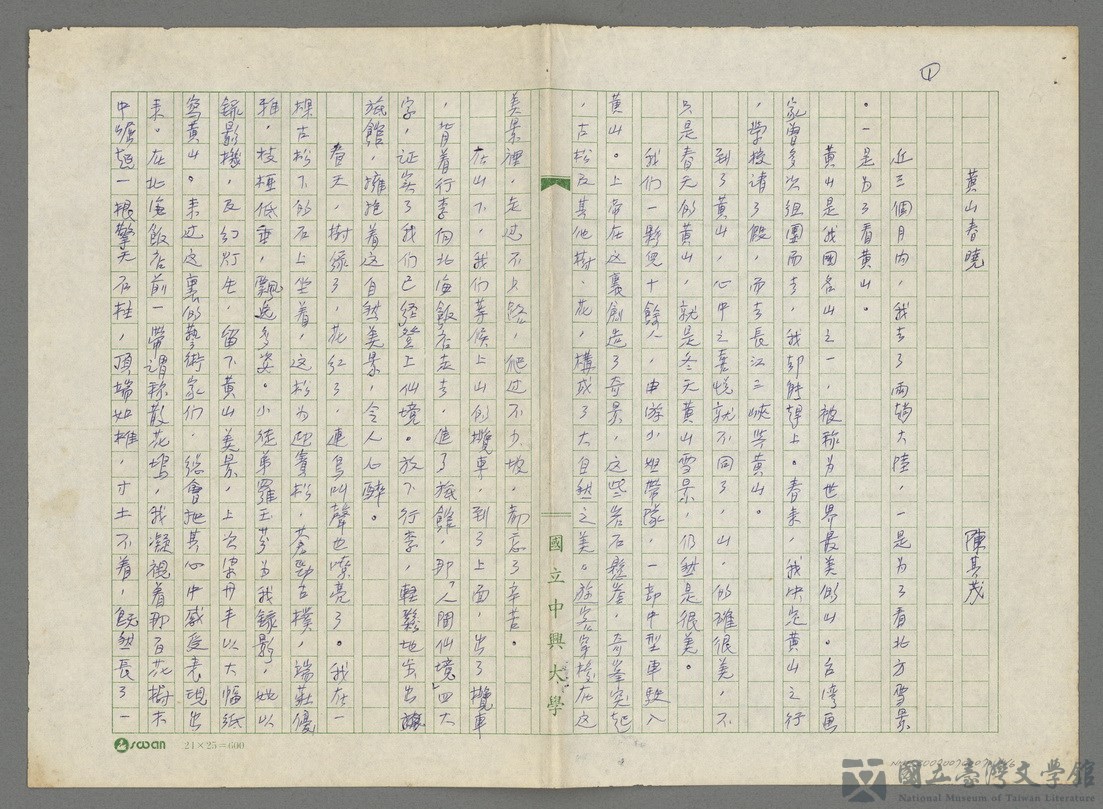 ①
黃山春曉　陳其茂
近三個月內，我去了兩趟大陸，一是為了看北方雪景
。一是為了看黃山。
黃山是我國名山之一，被称為世界最美的山。台湾画
家曾多次組團而去，我却無趕上。春末，我決定黃山之行
，學校請了假，而去長江三峽等黃山。
到了黃山，心中之喜悅就不同了，山，的確很美，不
只是春天的黃山，就是冬天黃山雪景，仍然是很美。
我們一夥兒十餘人，由游小姐帶隊，一部中型車駛入
黃山。上帝在這裏創造了奇景，這些岩石懸崖，奇峯突起
，古松及其他樹、花，構成了大自然之美。旅客穿梭在這
美景裡，走过不少路，爬过不少坡，都忘了辛苦。
在山下，我們等侯上山的攬車，到了上面，出了攬車
，背着行李個北海飯店走去，進了旅館，那「人間仙境」四大
字，证实了我們已經登上仙境。放下行李，輕鬆地出出
旅館，擁抱着这自然美景，令人人心醉。
春天，樹綠了，花紅了，連鸟叫聲也嘹亮了。我在一
棵古松下的石上坐着，这松为迎賓松，苍勁古樸，端莊優
雅，枝極低垂，飄逸多姿。小徒弟羅玉芬为我錄影，她以
錄影機，及幻灯生，留下黃山美景，上次梁丹丰以大幅紙
寫黃山。来过这裏的藝術家們，總會把其心中感受表現出
来。在北海飯店前一帶謂称散花塢，我凝視着那百花樹木
中崛起一根擎天石柱，頂端如椎，寸土不着，既然長了一
國立中興大學
swan 24×25=600
國立臺灣文學館
National Museum of Taiwan Literature